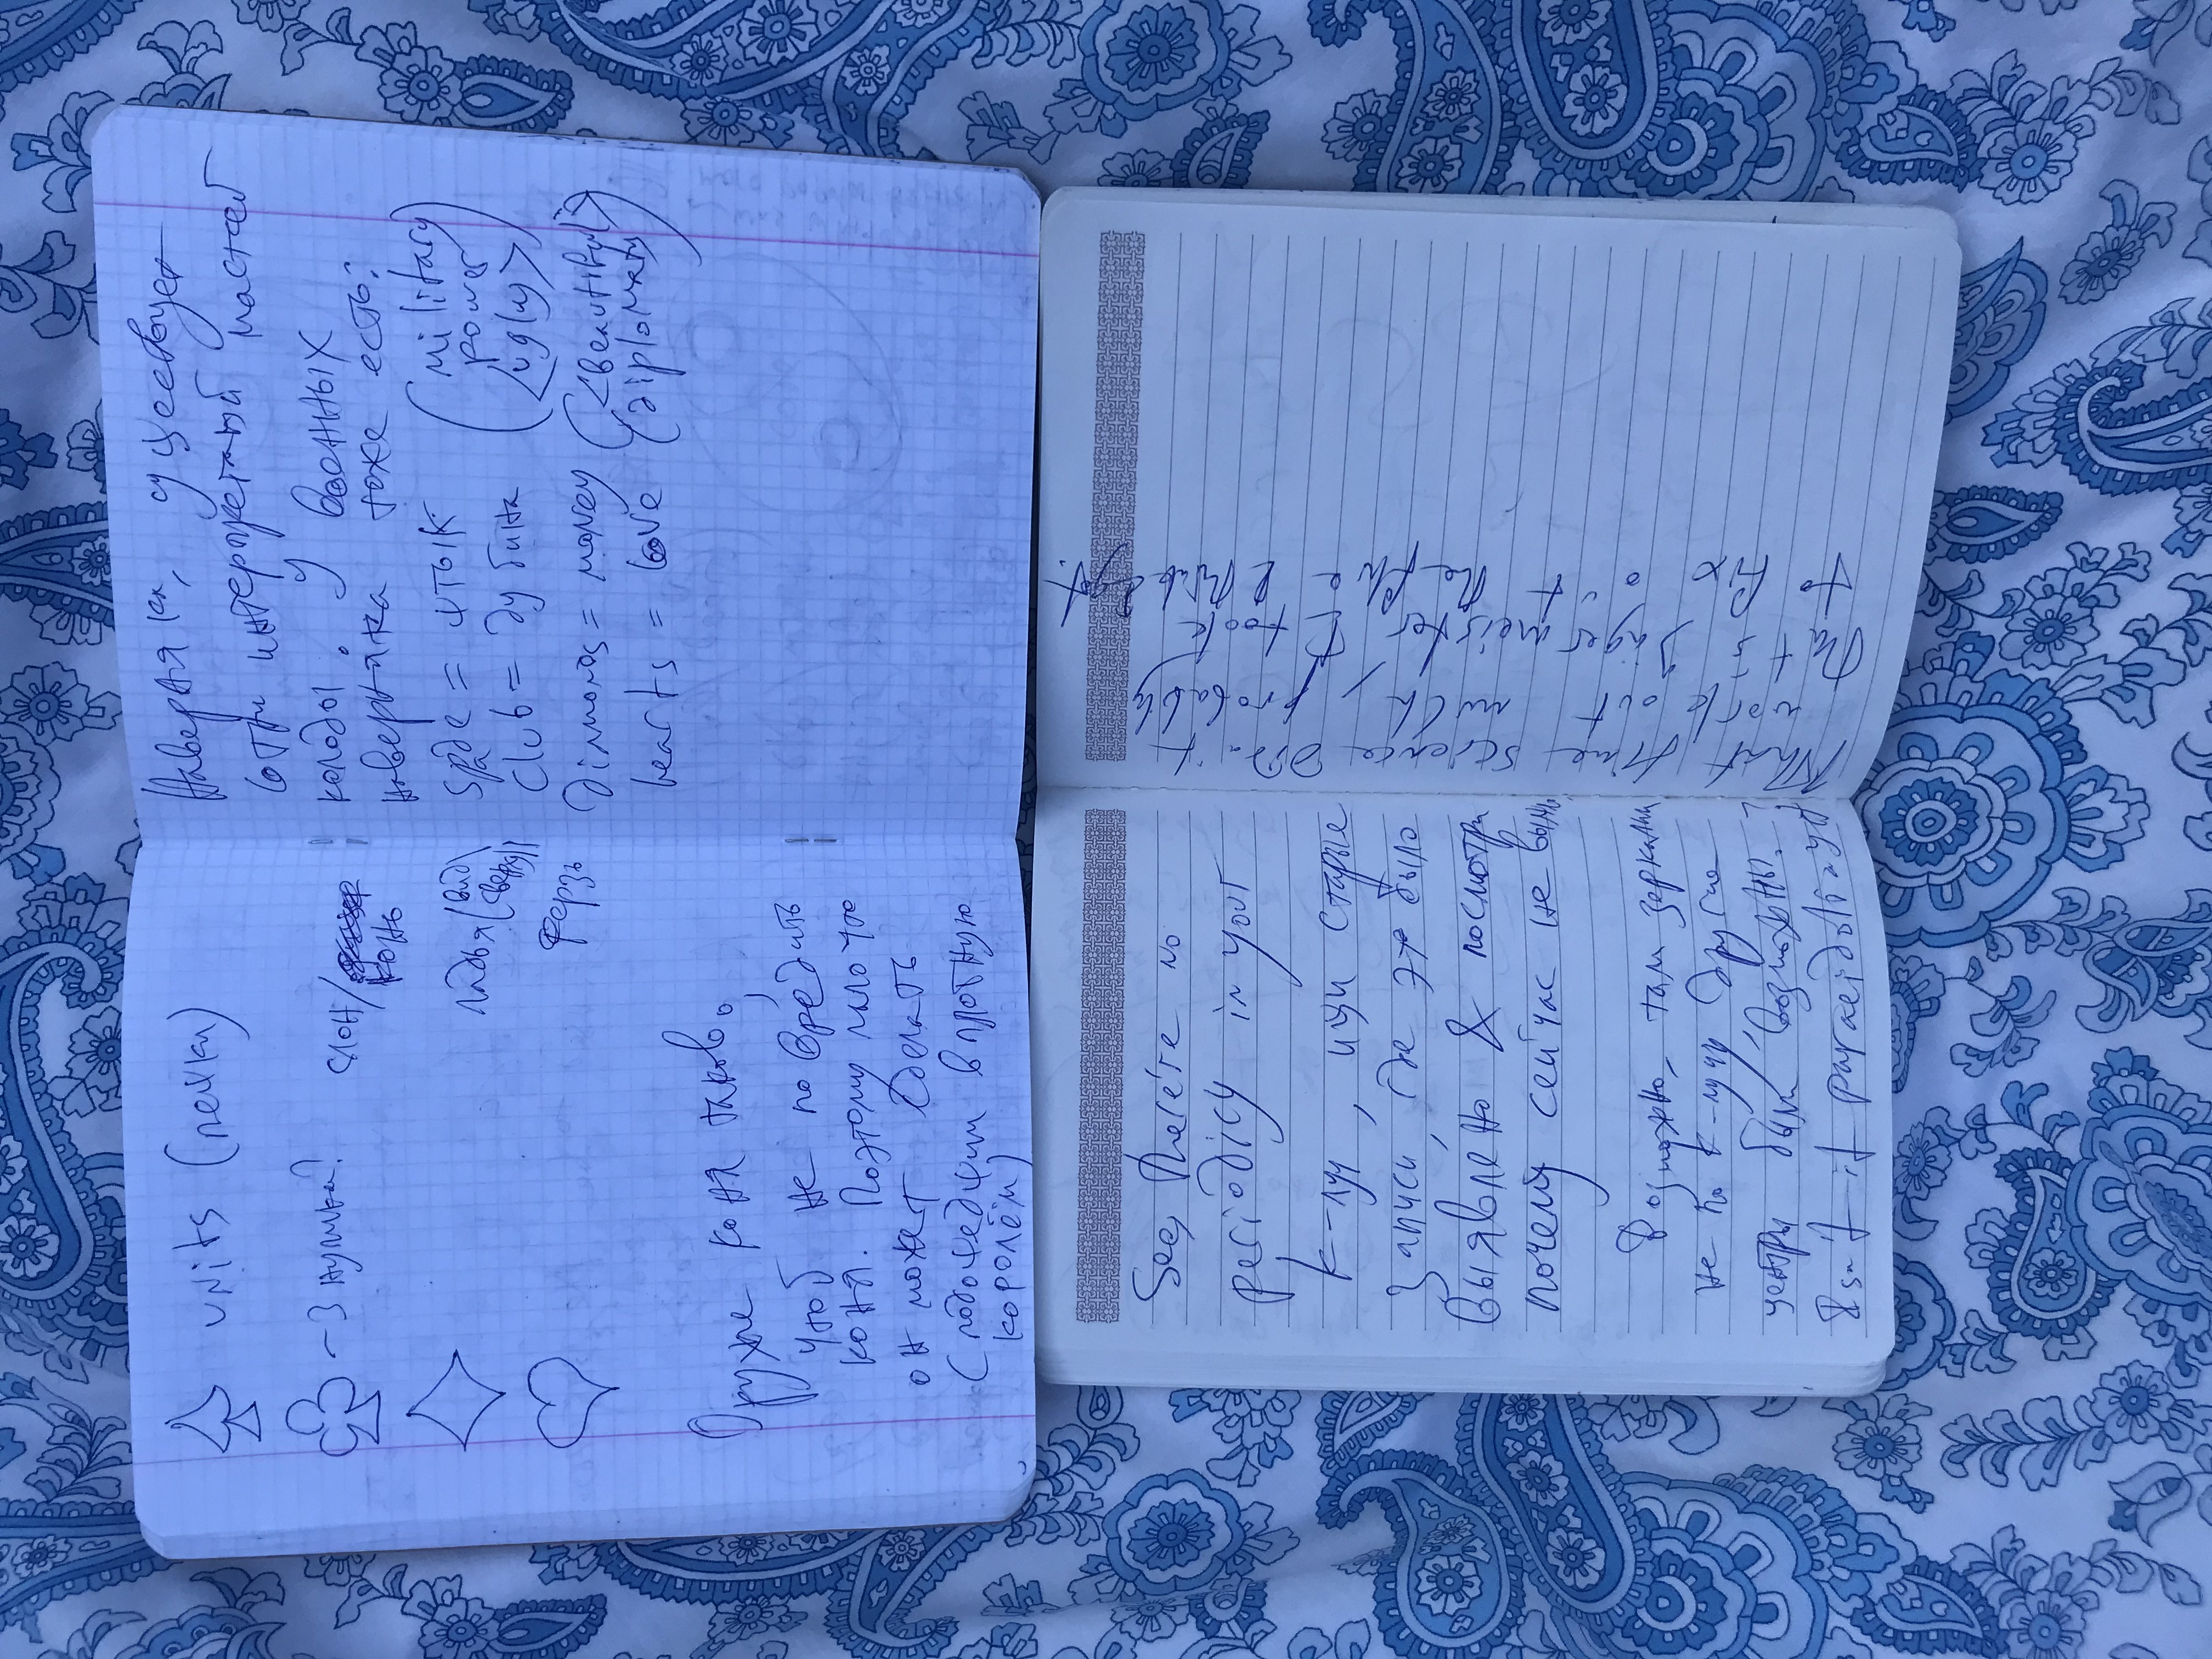 units (пешки)
- 3 нулика?
слон/
конь
ладья (вид
сверху)
ферзь
Оружие коня таково,
чтоб не повредить
коня. Поэтому мало что
он может сделать
(подошедшим вплотную
королём)
Наверняка, существует
сотни интерпретаций мастей
колоды. У военных
наверняка тоже есть?
Spade = штык (military
power
club = дубина <ugly>)
Diamonds = money (<beautiful>
hearts = love diplomaty)
See, there're no
periodicy in your
k-луч, ищи старые
записи, где это было
выявлено & посмотри
почему сейчас не
Возможно, там зеркалили
не по k-лучу, другие
центры были возможны?
Isn't it paraeidolia yet
That time science didn't
work out much, probably
that's Jägermeister I took
to fix out the flu I think I got.